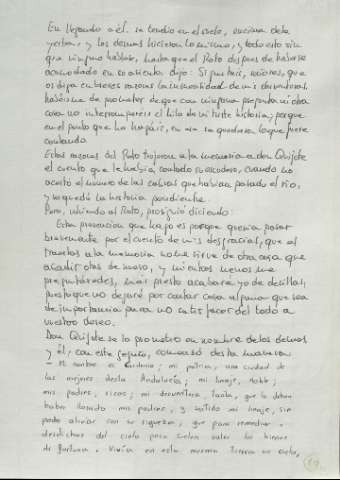 En llegando a él, se tendió en el suelo, encima de la
yerba, y los demás hicieron lo mismo, y todo esto sin
que ninguno hablase, hasta que el Roto después de haberse
acomodado en su asiento dijo: Si gustáis, señores, que
os diga en breves razones la inmensidad de mis desventuras,
habéisme de prometer de que con ninguna pregunta ni otra
cosa no interrumpiréis el hilo de mi triste historia; porque
en el punto que lo hagáis, en ese se quedará lo que fuere
contando.
Estas razones del Roto trujeron a la memoria a don Quijote
el cuento que le había contado su escudero, cuando no
acertó el número de las cabras que habían pasado el río,
y se quedó la historia pendiente.
Pero, volviendo al Roto, prosiguió diciendo:
Esta prevención que hago es porque querría pasar
brevemente por el cuento de mis desgracias, que el
traerlas a la memoria no me sirve de otra cosa que
añadir otras de nuevo, y mientras menos me
preguntáredes, más presto acabaré yo de decillas,
puesto que no dejaré por contar cosa alguna que sea
de importancia para no satisfacer del todo a
vuestro deseo.
Don Quijote se lo prometió en nombre de los demás
y él, con este seguro, comenzó desta manera:
- Mi nombre es Cardenio; mi patria, una ciudad de
las mejores desta Andalucía; mi linaje, noble;
mis padres, ricos; mi desventura, tanta, que la deben
haber llorado mis padres, y sentido mi linaje, sin
poder aliviar con su riqueza; que para remediar
desdichas del cielo poco suelen valer los bienes
de fortuna. Vivía en esta mesma tierra un cielo,